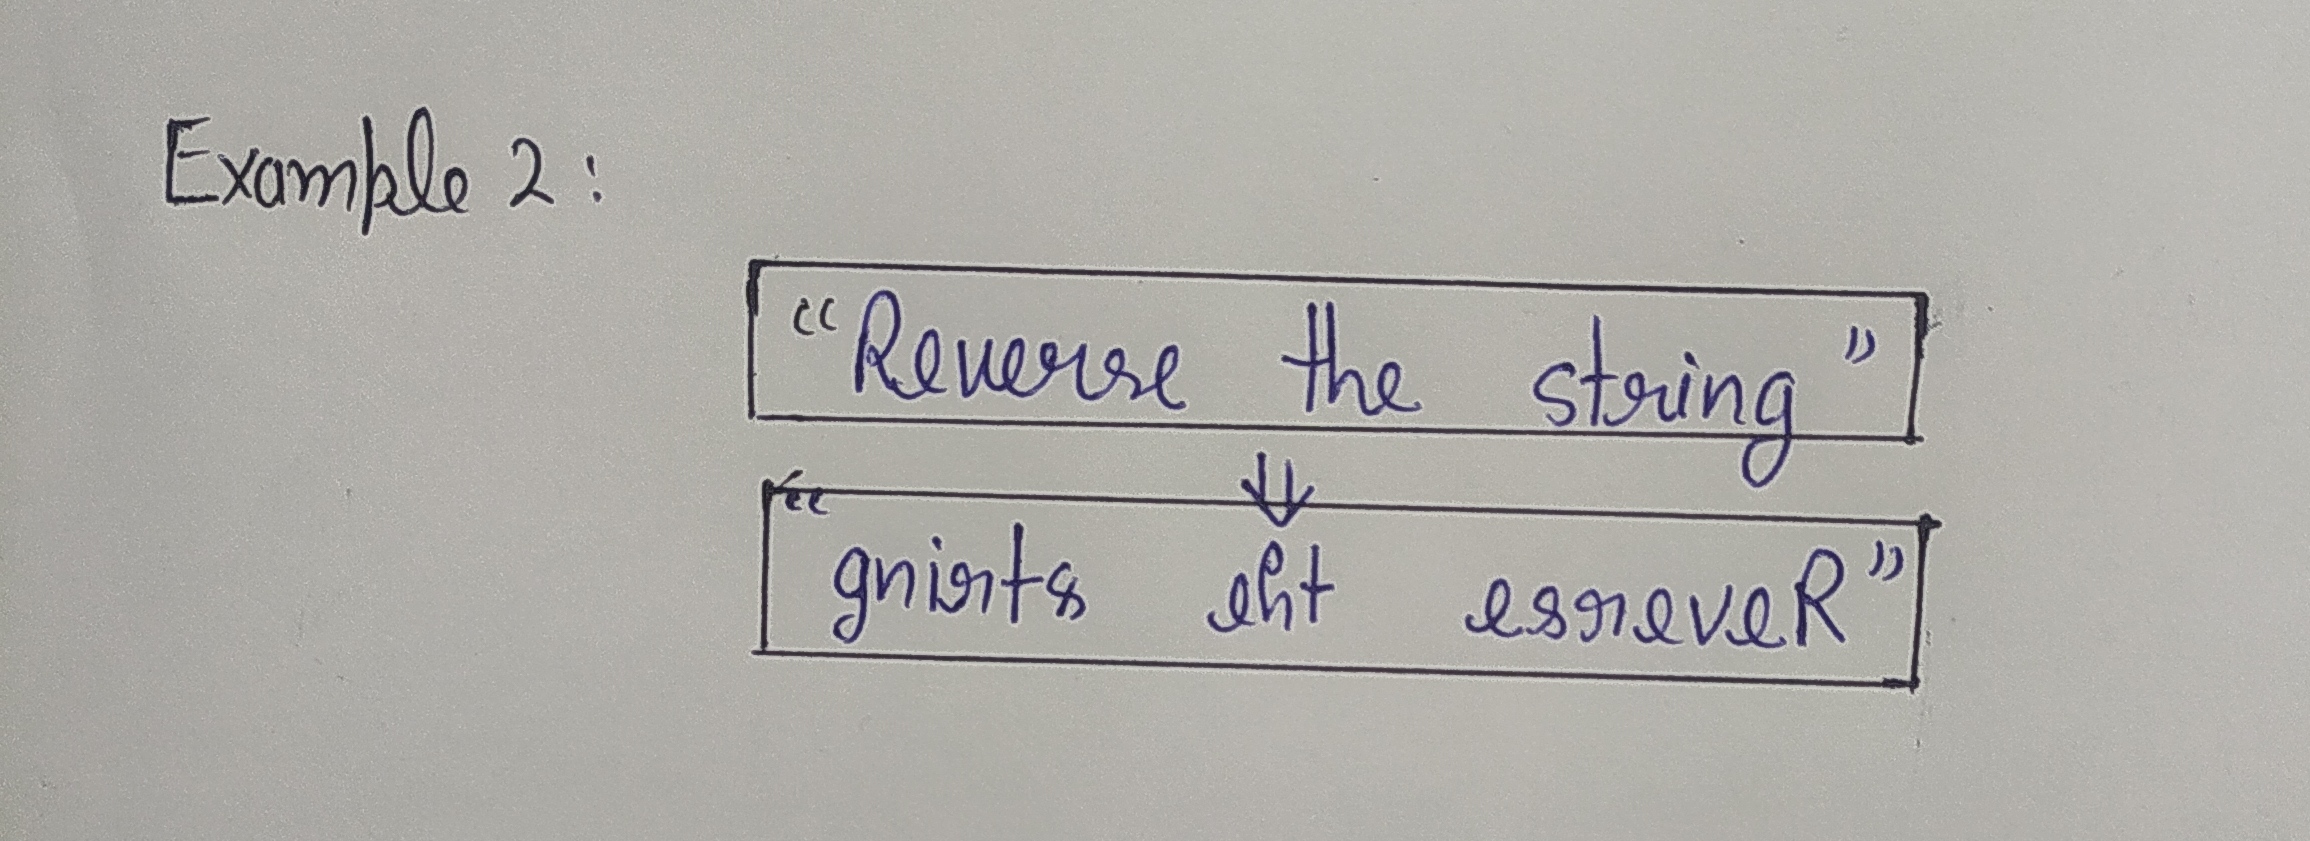 Example 2:
“Reverse the string”
“gnirts eht esreveR”